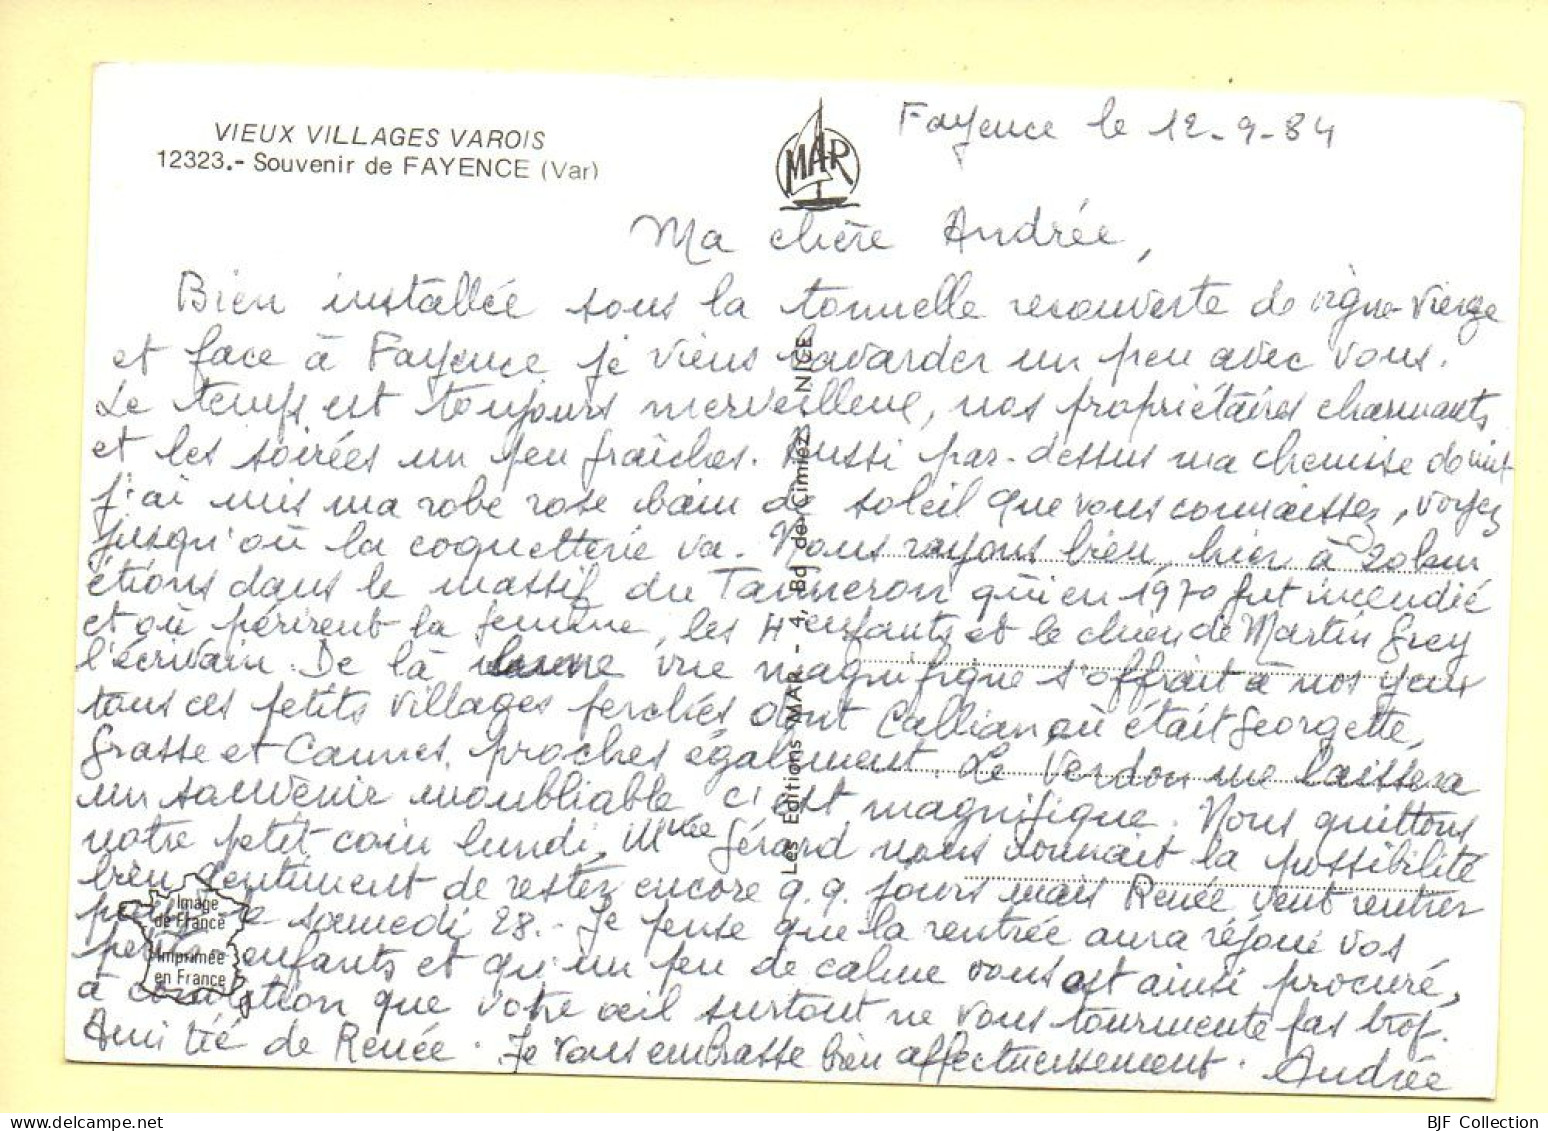 VIEUX VILLAGES VAROIS
12323.- Souvenir de FAYENCE (Var)
MAR
Fayence le 12-9-84
Ma chère Andrée,
Bien installée sous la tonnelle recouverte de vigne-vierge
et face à Fayence je viens bavarder un peu avec vous.
Le temps est toujours merveilleux, nos propriétaires charmants
et les soirées un peu fraîches. Aussi par-dessus ma chemise de nuit
j'ai mis ma robe rose bain de soleil que vous connaissez, voyez
jusqu'où la coquetterie va. Nous rayons bien, hier à 20km
étions dans le massif du Tanneron qui en 1970 fut incendié
et où périrent la femme, les 4 enfants et le chien de Martin Grey
l'écrivain. De là une vue magnifique s'offrait à nos yeux
tous ces petits villages perchés dont Callian où était Georgette,
Grasse et Cannes, proches également. Le Verdon me laissera
un souvenir inoubliable c'est magnifique. Nous quittons
notre petit coin lundi, Gérard nous donnait la possibilité
bien gentiment de rester encore q.q. jours mais Renée veut rentrer
le samedi 28.- Je pense que la rentrée aura réjoui vos
petits enfants et qu'un peu de calme vous est ainsi procuré,
à condition que votre œil surtout ne vous tourmente pas trop.
Amitié de Renée. Je vous embrasse bien affectueusement. Andrée
Les Editions MAR - 4, Bd de Cimiez - NICE
Image
de France
Imprimée
en France
BJF Collection